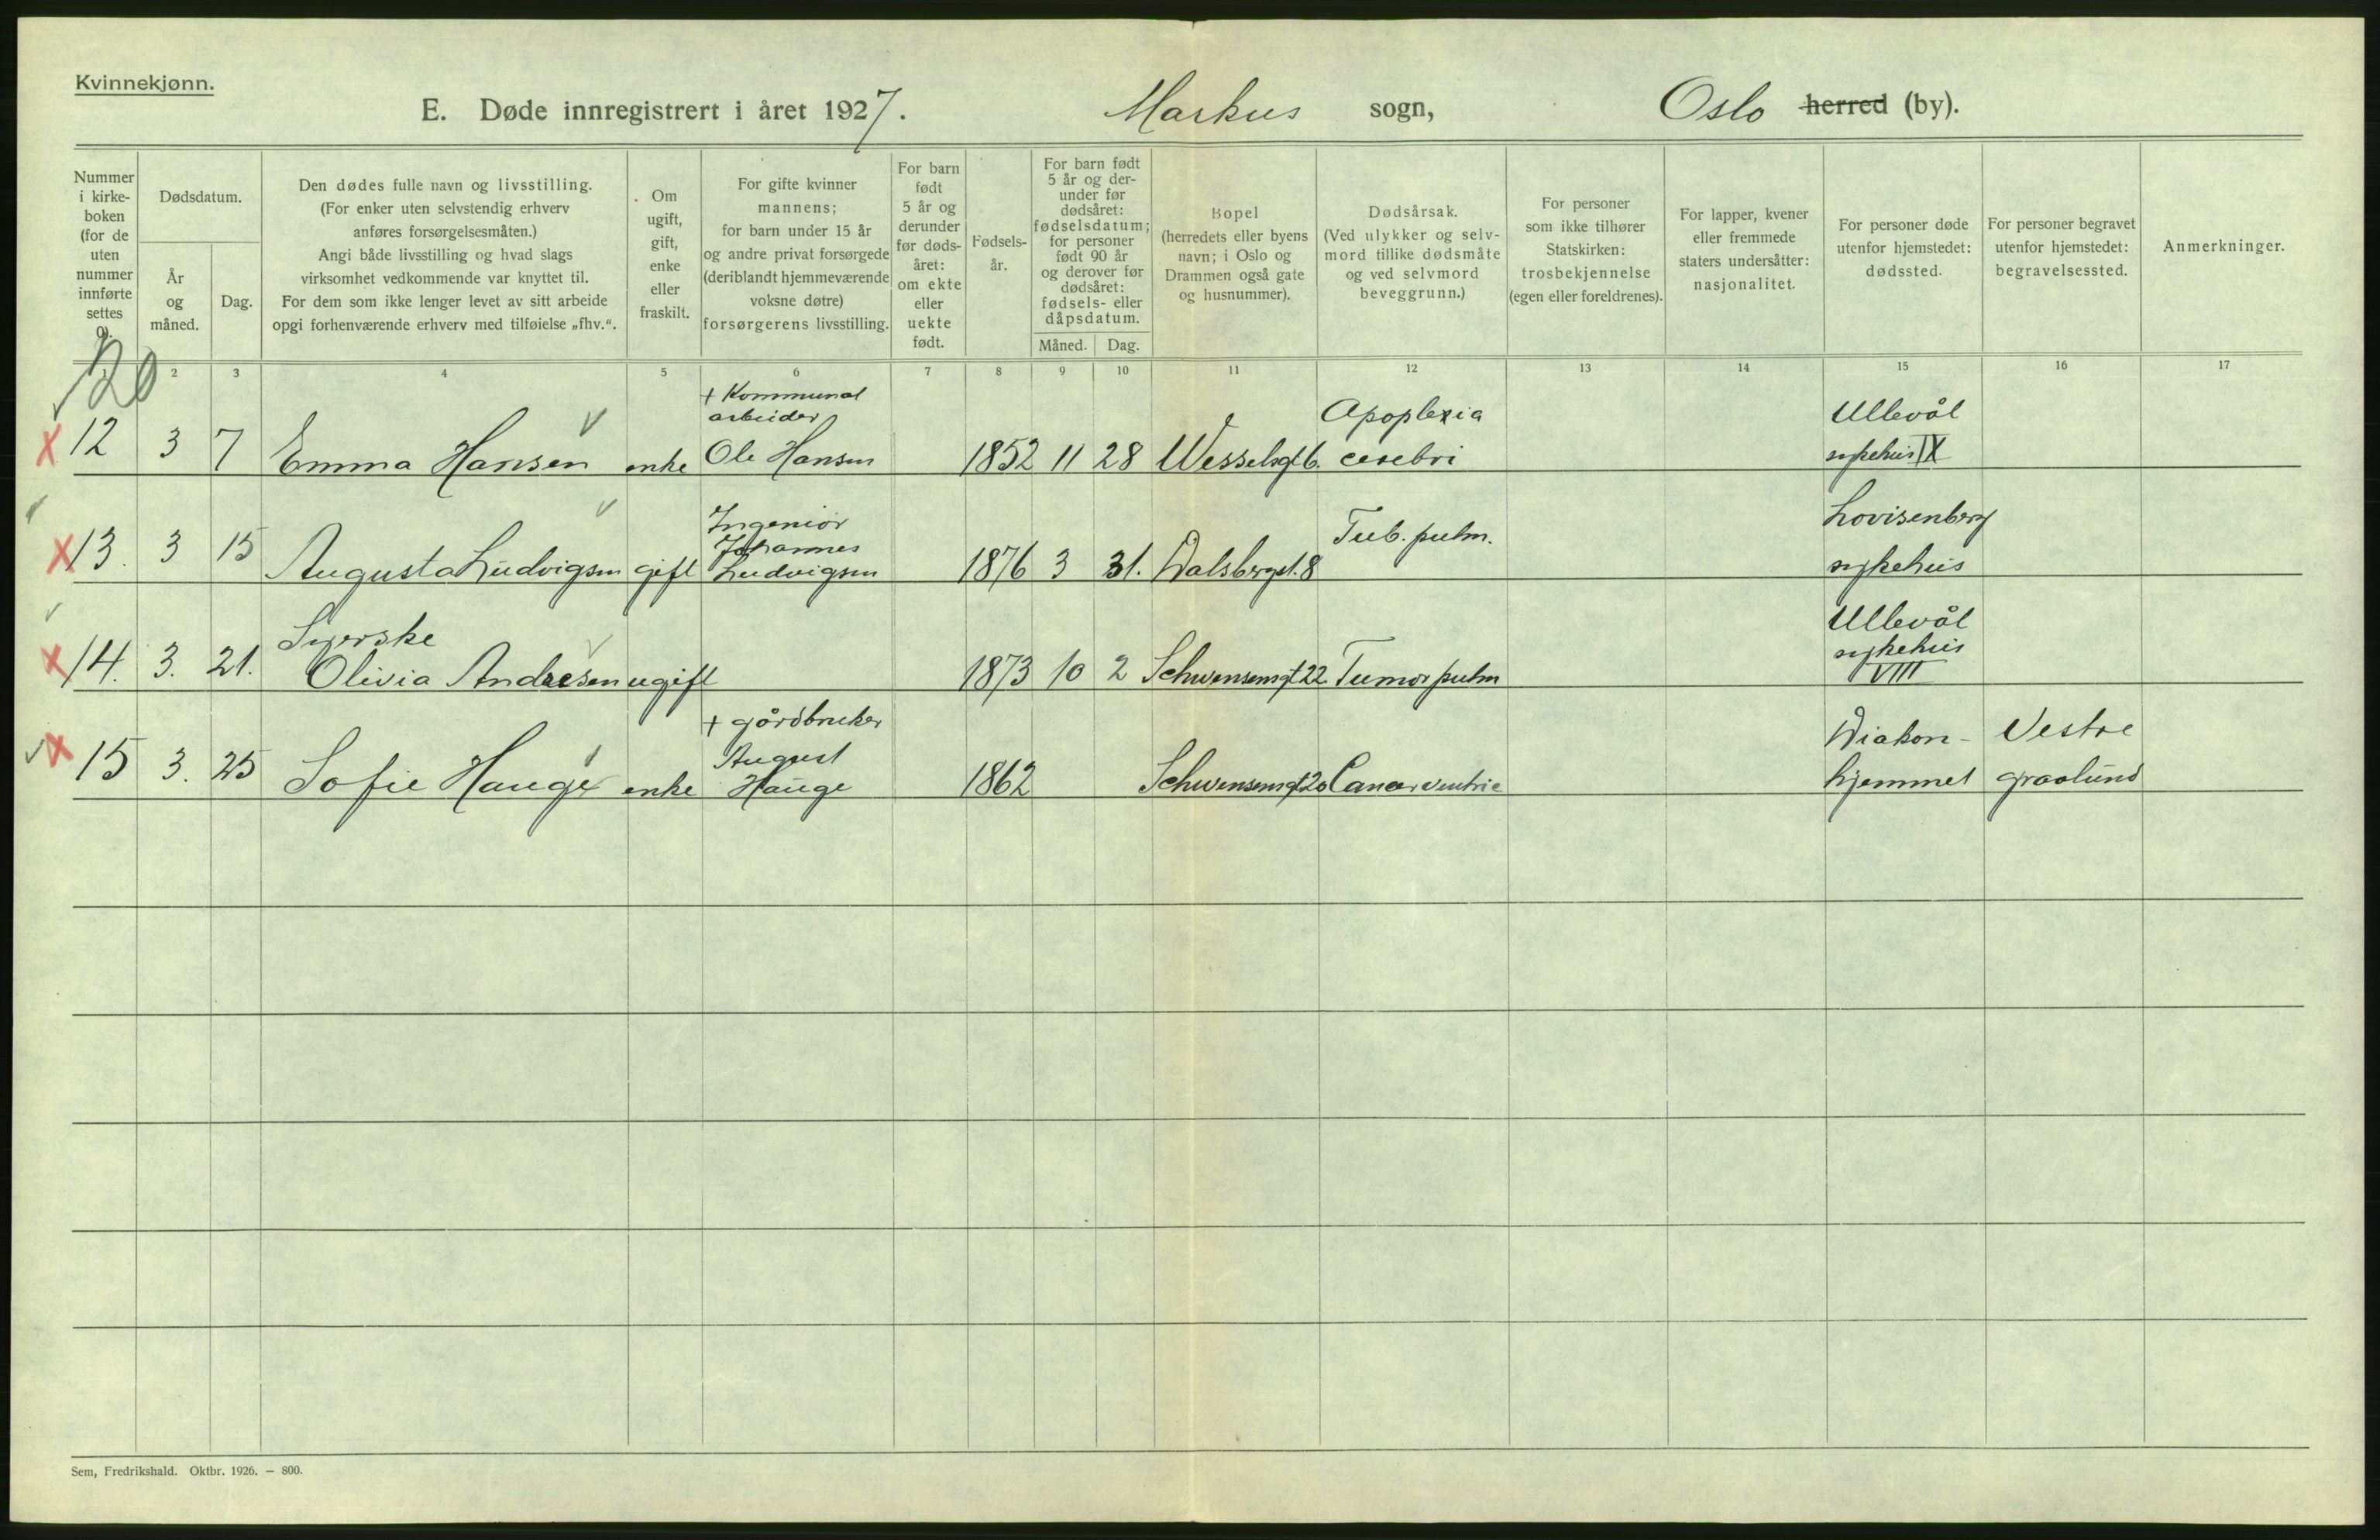 Kvinnekjønn.
E. Døde innregistrert i året 1927. Markus sogn, Oslo herred (by).
Nummer i kirke- boken (for de uten nummer innførte settes 0).
Dødsdatum.
År og måned.
Dag.
Den dødes fulle navn og livsstilling.
(For enker uten selvstendig erhverv
anføres forsørgelsesmåten.)
Angi både livsstilling og hvad slags
virksomhet vedkommende var knyttet til.
For dem som ikke lenger levet av sitt arbeide
opgi forhenværende erhverv med tilføielse „fhv.“.
Om
ugift,
gift,
enke
eller
fraskilt.
For gifte kvinner
mannens;
for barn under 15 år
og andre privat forsørgede
(deriblandt hjemmeværende
voksne døtre)
forsørgerens livsstilling.
For barn
født
5 år og
derunder
før døds-
året:
om ekte
eller
uekte
født.
Fødsels-
år.
For barn født
5 år og der-
under før
dødsåret:
fødselsdatum;
for personer
født 90 år
og derover før
dødsåret:
fødsels- eller
dåpsdatum.
Måned. Dag.
Bopel
(herredets eller byens
navn; i Oslo og
Drammen også gate
og husnummer).
Dødsårsak.
(Ved ulykker og selv-
mord tillike dødsmåte
og ved selvmord
beveggrunn.)
For personer
som ikke tilhører
Statskirken:
trosbekjennelse
(egen eller foreldrenes).
For lapper, kvener
eller fremmede
staters undersåtter:
nasjonalitet.
For personer døde
utenfor hjemstedet:
dødssted.
For personer begravet
utenfor hjemstedet:
begravelsessted.
Anmerkninger.
2 3 4 5 6 7 8 9 10 11 12 13 14 15 16 17
120
+ Kommunal
arbeider Apoplexia Ullevål
12 3 7 Emma Hansen enke Ole Hansen 1852 11 28 Wesselsgt 6. cerebri sykehus IX
Ingeniør Lovisenberg
13. 3 15 Johannes Tub. pulm.
Augusta Ludvigsen gift Ludvigsen 1876 3 31. Dalsbergst. 8 sykehus
Syerske Ullevål
14. 3. 21. Olivia Andresen ugift 1873 10 2 Schwensensgt 22 Tumor pulm sykehus
VIII
+ gårdbruker
15 3. 25 August Diakon- Vestre
Sofie Hauge enke Hauge 1862 Schwensensgt 20 Cancer ventric hjemmet gravlund
Sem, Fredrikshald. Oktbr. 1926. — 800.